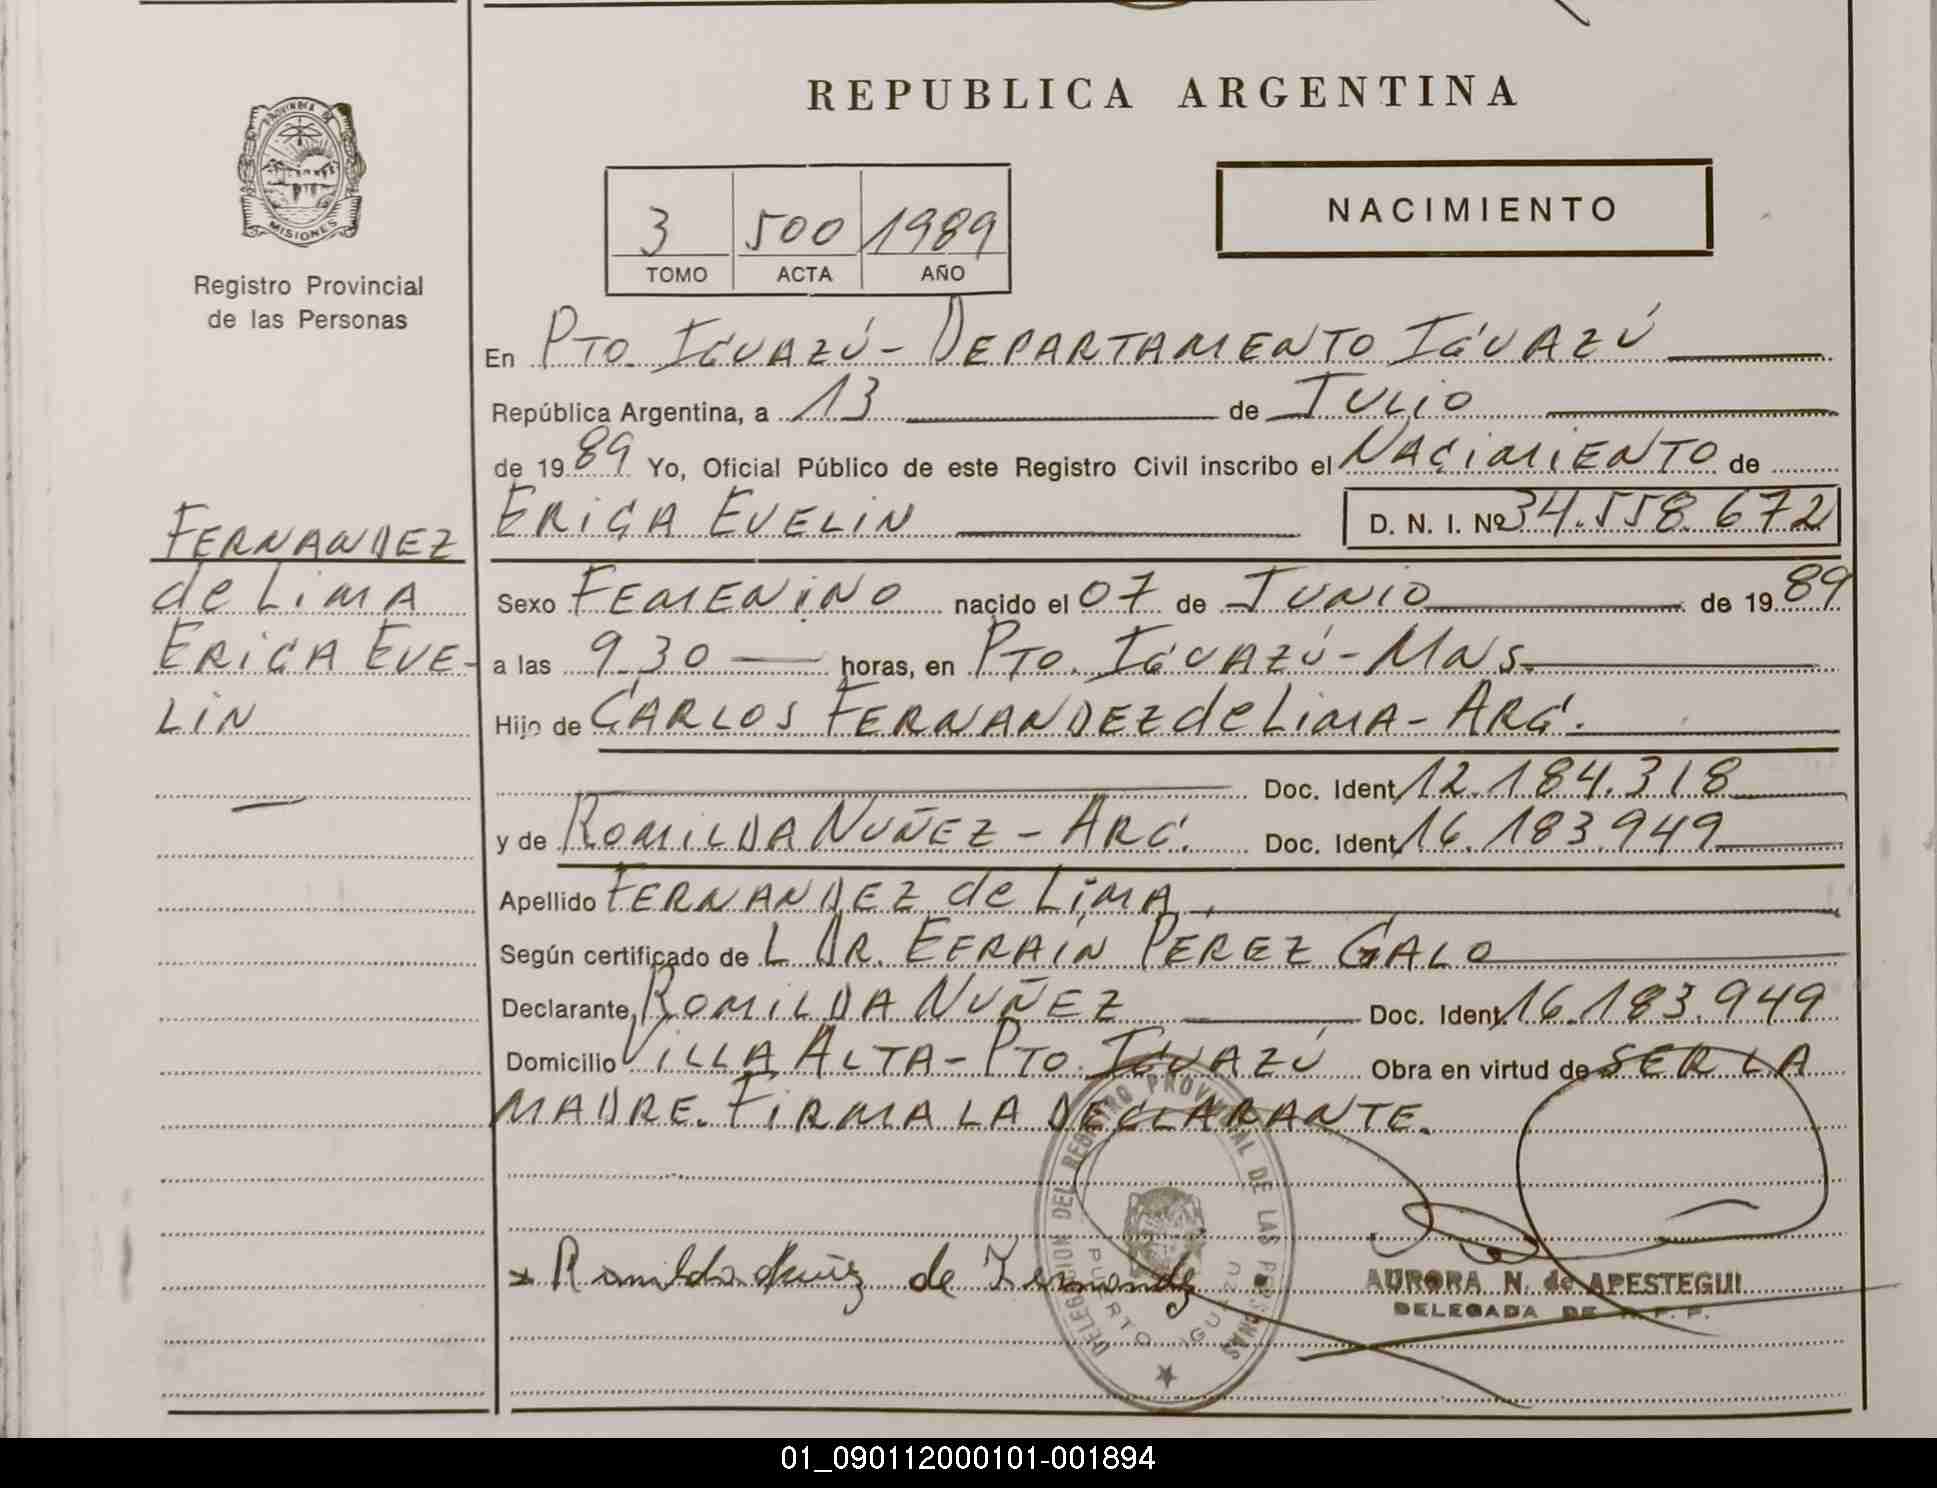 REPUBLICA ARGENTINA
PROVINCIA DE
MISIONES
Registro Provincial
de las Personas
3 500 1989
TOMO ACTA AÑO
NACIMIENTO
En PTO. IGUAZÚ - DEPARTAMENTO IGUAZÚ
República Argentina, a 13 de JULIO
de 1989 Yo, Oficial Público de este Registro Civil inscribo el NACIMIENTO de
ERICA EVELIN D. N. I. Nº 34.558.672
FERNANDEZ
de LIMA
ERICA EVE-
LIN
Sexo FEMENINO nacido el 07 de JUNIO de 1989
a las 9.30 horas, en PTO. IGUAZÚ - MNS.
Hijo de CARLOS FERNANDEZ de LIMA - ARG.
Doc. Ident. 12.184.318
y de ROMILDA NUÑEZ - ARG. Doc. Ident. 16.183.949
Apellido FERNANDEZ de LIMA
Según certificado de L DR. EFRAÍN PEREZ GALO
Declarante, ROMILDA NUÑEZ Doc. Ident. 16.183.949
Domicilio VILLA ALTA - PTO. IGUAZÚ Obra en virtud de SER LA
MADRE. FIRMA LA DECLARANTE.
DELEGACION DEL REGISTRO PROVINCIAL DE LAS PERSONAS
PUERTO IGUAZU
Romilda de
AURORA N. de APESTEGUI
DELEGADA DE
01_090112000101-001894